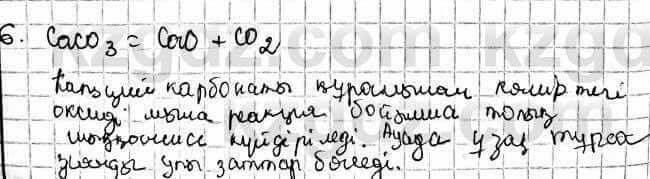 6. CaCO3 = CaO + CO2
Кальций карбонаты құрамынан көміртегі
оксиді мына реакция бойынша толық
күйдіріледі. Ауада ұзақ тұрса
зиянды улы заттар бөледі.